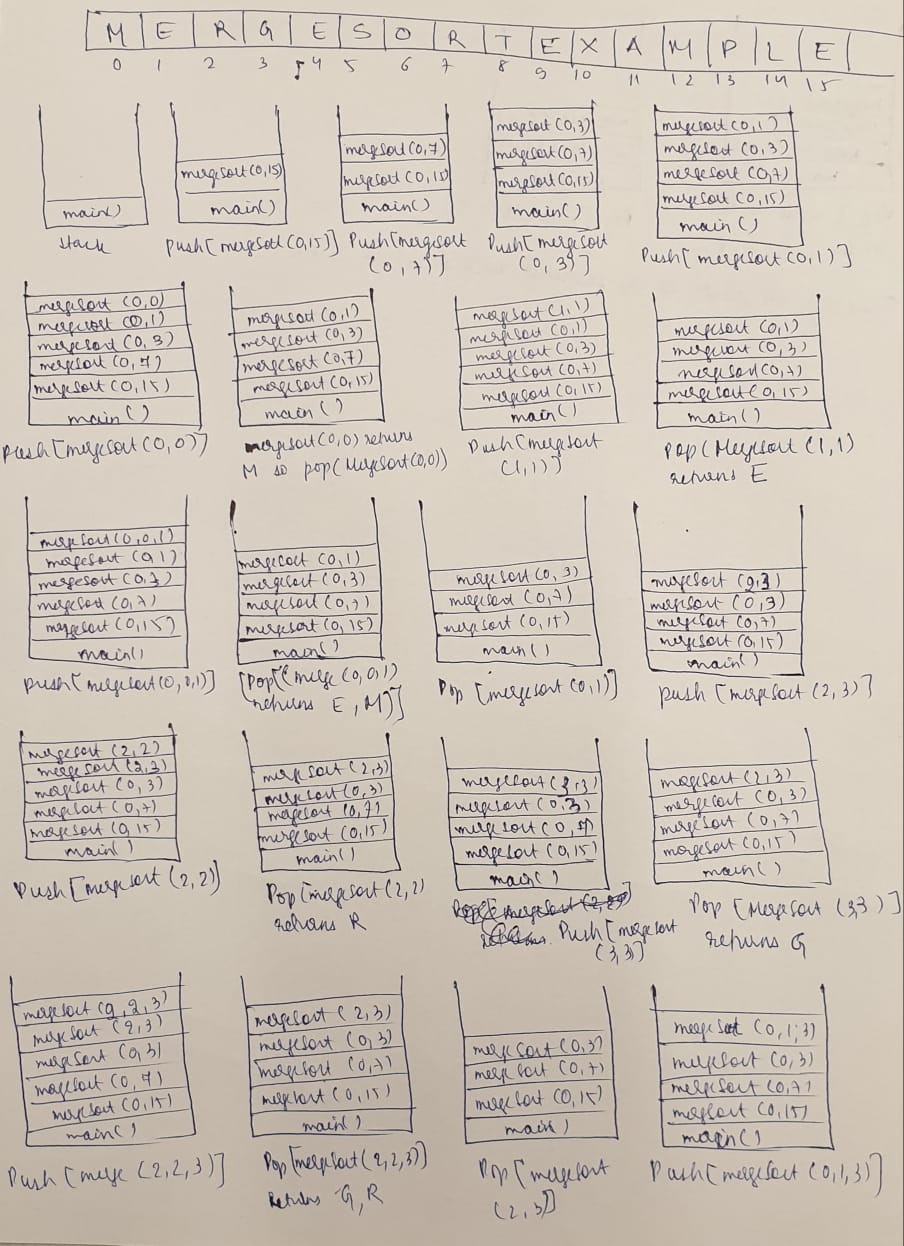 M E R G E S O R T E X A M P L E
0 1 2 3 4 5 6 7 8 9 10 11 12 13 14 15
main()
Stack
mergesort (0,15)
main()
Push[mergesort (0,15)]
mergesort (0,7)
mergesort (0,15)
main()
Push[mergesort
(0,7)]
mergesort (0,3)
mergesort (0,7)
mergesort (0,15)
main()
Push[mergesort
(0,3)]
mergesort (0,1)
mergesort (0,3)
mergesort (0,7)
mergesort (0,15)
main()
Push[mergesort (0,1)]
mergesort (0,0)
mergesort (0,1)
mergesort (0,3)
mergesort (0,7)
mergesort (0,15)
main()
Push[mergesort (0,0)]
mergesort (0,1)
mergesort (0,3)
mergesort (0,7)
mergesort (0,15)
main()
mergesort (0,0) returns
M so pop(Mergesort(0,0))
mergesort (1,1)
mergesort (0,1)
mergesort (0,3)
mergesort (0,7)
mergesort (0,15)
main()
Push[mergesort
(1,1)]
mergesort (0,1)
mergesort (0,3)
mergesort (0,7)
mergesort (0,15)
main()
Pop(Mergesort (1,1)
returns E
mergesort (0,0,1)
mergesort (0,1)
mergesort (0,3)
mergesort (0,7)
mergesort (0,15)
main()
Push[mergesort (0,0,1)]
mergesort (0,1)
mergesort (0,3)
mergesort (0,7)
mergesort (0,15)
main()
[Pop[(merge (0,0,1)
returns E, M)]
mergesort (0,3)
mergesort (0,7)
mergesort (0,15)
main()
Pop [mergesort (0,1)]
mergesort (2,3)
mergesort (0,3)
mergesort (0,7)
mergesort (0,15)
main()
push [mergesort (2,3)]
mergesort (2,2)
mergesort (2,3)
mergesort (0,3)
mergesort (0,7)
mergesort (0,15)
main()
Push[mergesort (2,2)]
mergesort (2,3)
mergesort (0,3)
mergesort (0,7)
mergesort (0,15)
main()
Pop[mergesort (2,2)
returns R
mergesort (3,3)
mergesort (0,3)
mergesort (0,7)
mergesort (0,15)
main()
Push[mergesort
(3,3)]
mergesort (2,3)
mergesort (0,3)
mergesort (0,7)
mergesort (0,15)
main()
Pop [Mergesort (3,3)]
returns G
mergesort (2,2,3)
mergesort (2,3)
mergesort (0,3)
mergesort (0,7)
mergesort (0,15)
main()
Push [merge (2,2,3)]
mergesort (2,3)
mergesort (0,3)
mergesort (0,7)
mergesort (0,15)
main()
Pop [mergesort (2,2,3)]
Returns G, R
mergesort (0,3)
mergesort (0,7)
mergesort (0,15)
main()
Pop [mergesort
(2,3)]
mergesort (0,1,3)
mergesort (0,3)
mergesort (0,7)
mergesort (0,15)
main()
Push[mergesort (0,1,3)]